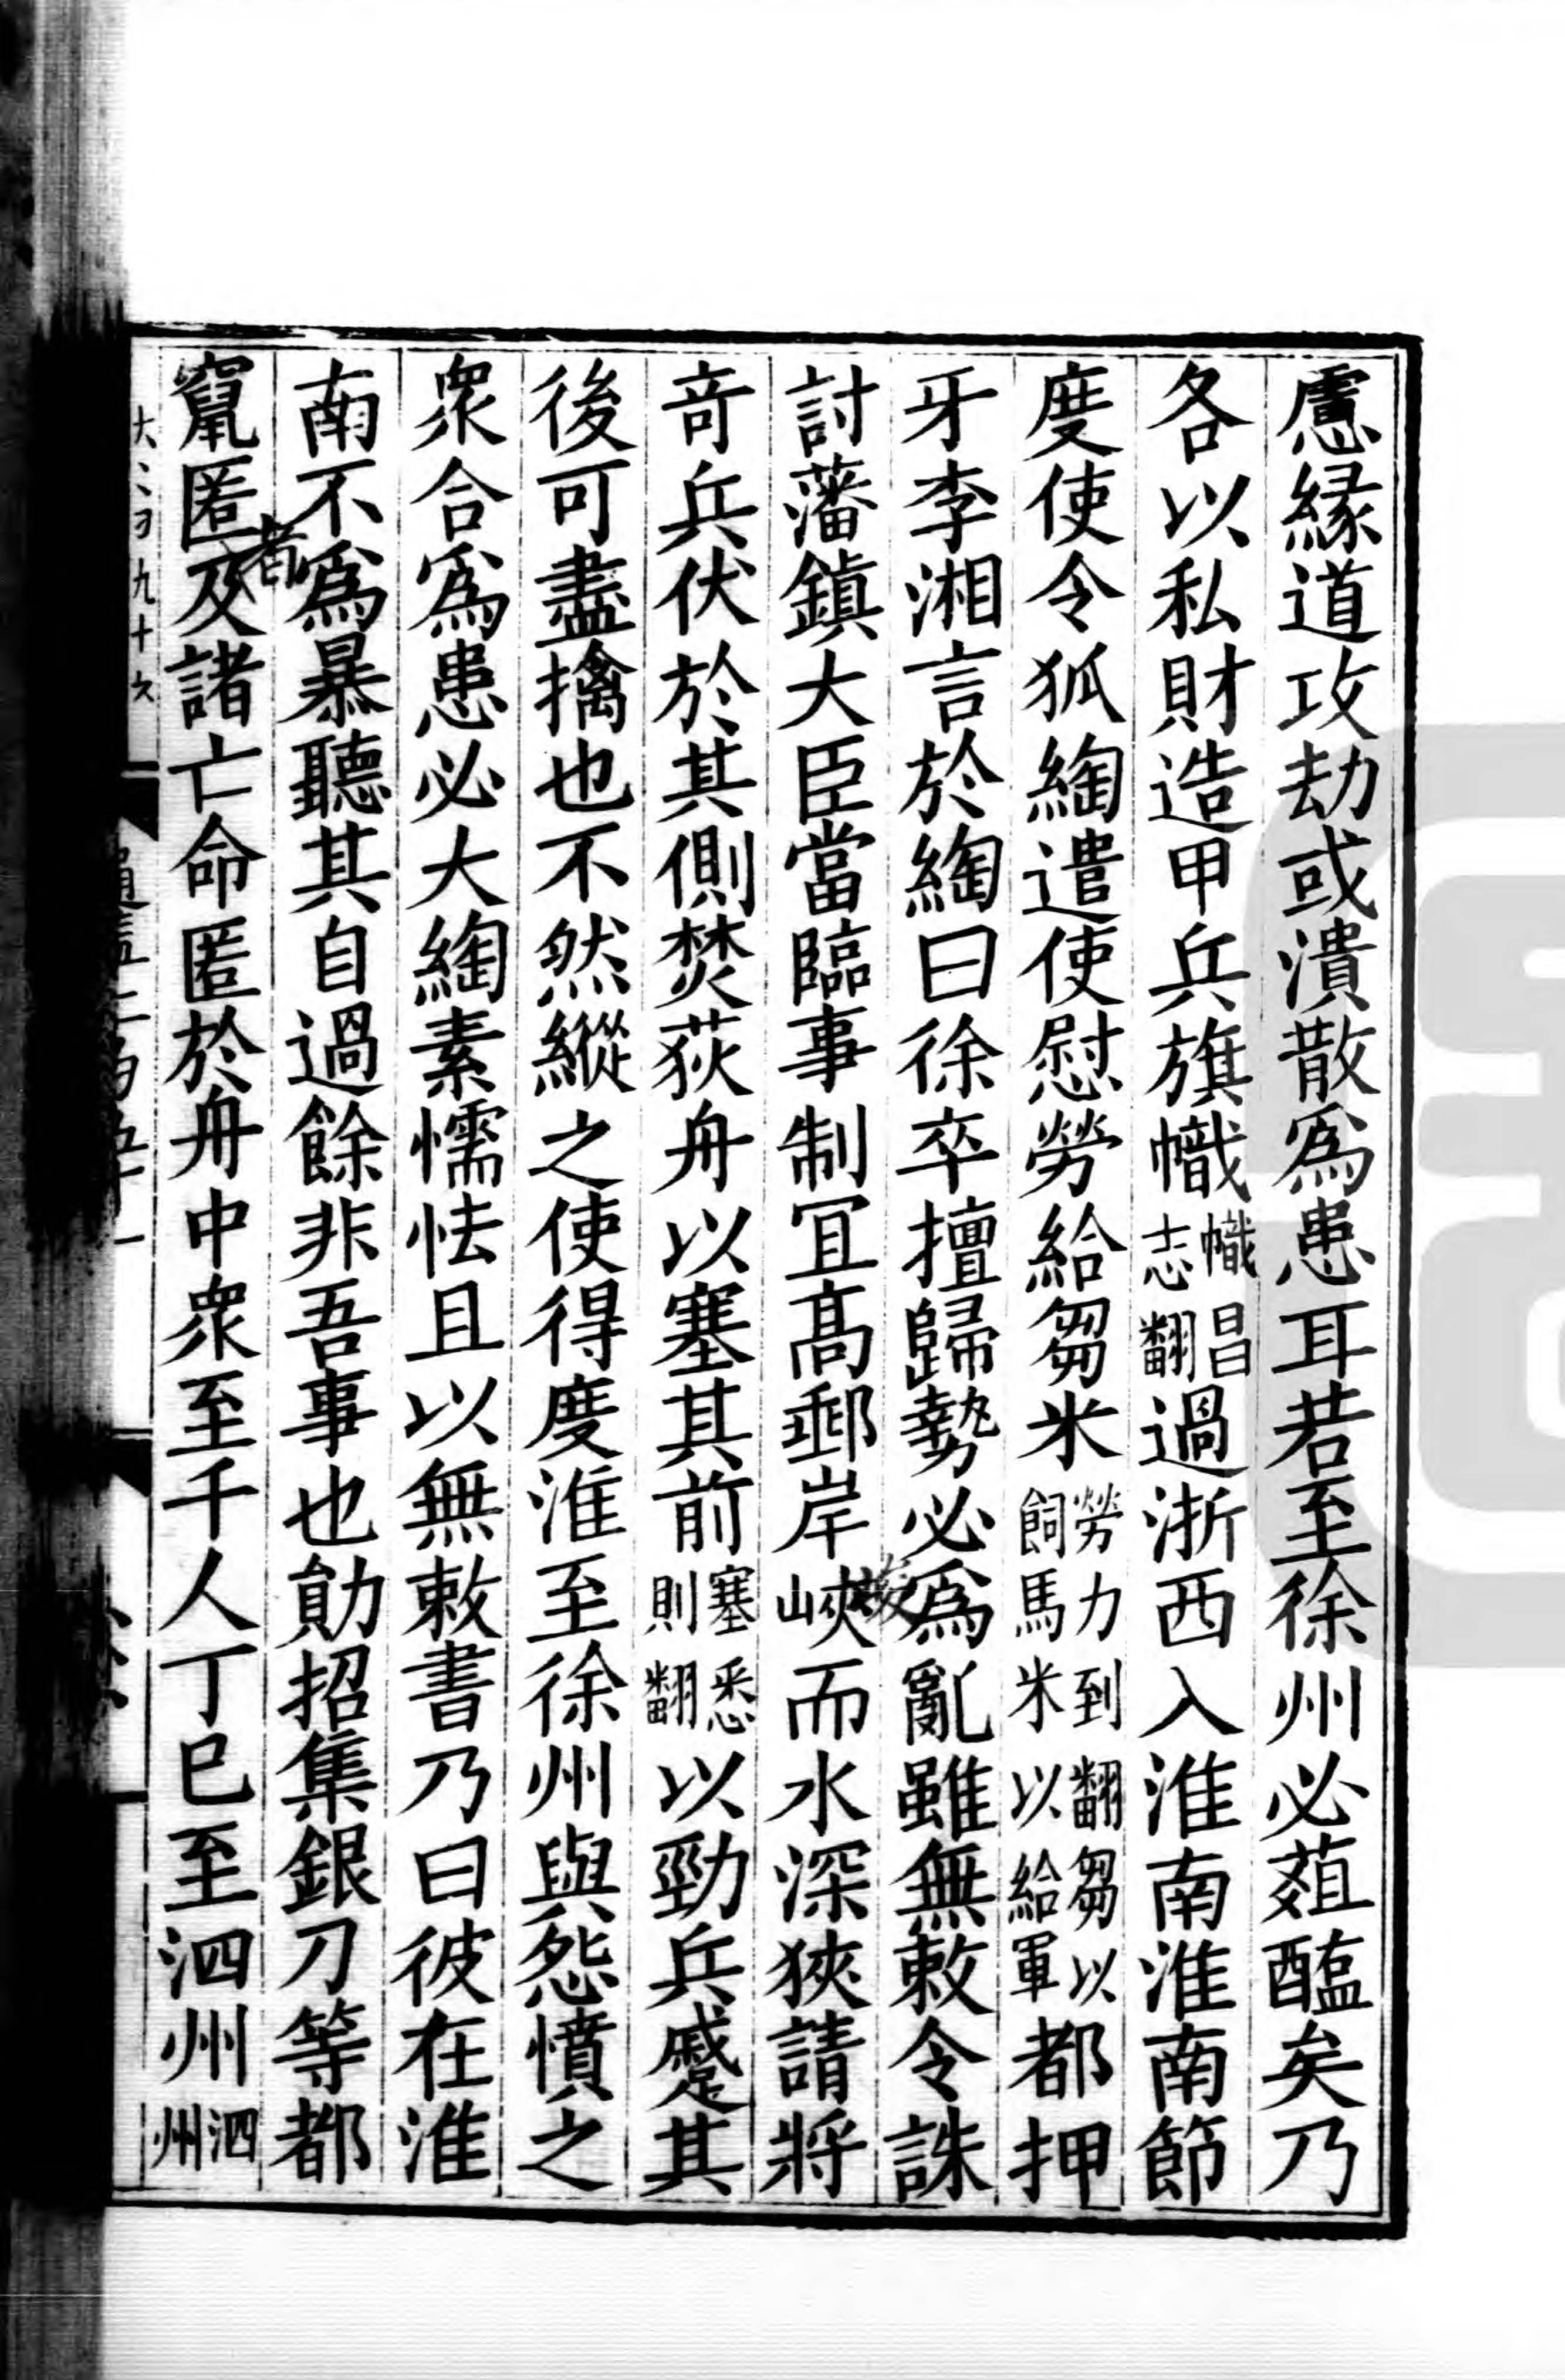 慮縁道攻劫或潰散爲患耳若至徐州必葅醢矣乃
各以私財造甲兵旗幟幟昌志翻過浙西入淮南淮南節
度使令狐綯遣使慰勞給芻米勞力到翻芻以飼馬米以給軍都押
牙李湘言於綯曰徐卒擅歸勢必爲亂雖無敕令誅
討藩鎮大臣當臨事制冝髙郵岸峽而水深狹請將
竒兵伏於其側焚荻舟以塞其前塞悉則翻以勁兵蹙其
後可盡擒也不然縱之使得度淮至徐州與怨憤之
衆合爲患必大綯素懦怯且以無敕書乃曰彼在淮
南不爲暴聽其自過餘非吾事也勛招集銀刀等都
竄匿及諸亡命匿於舟中衆至千人丁巳至泗州泗州
者